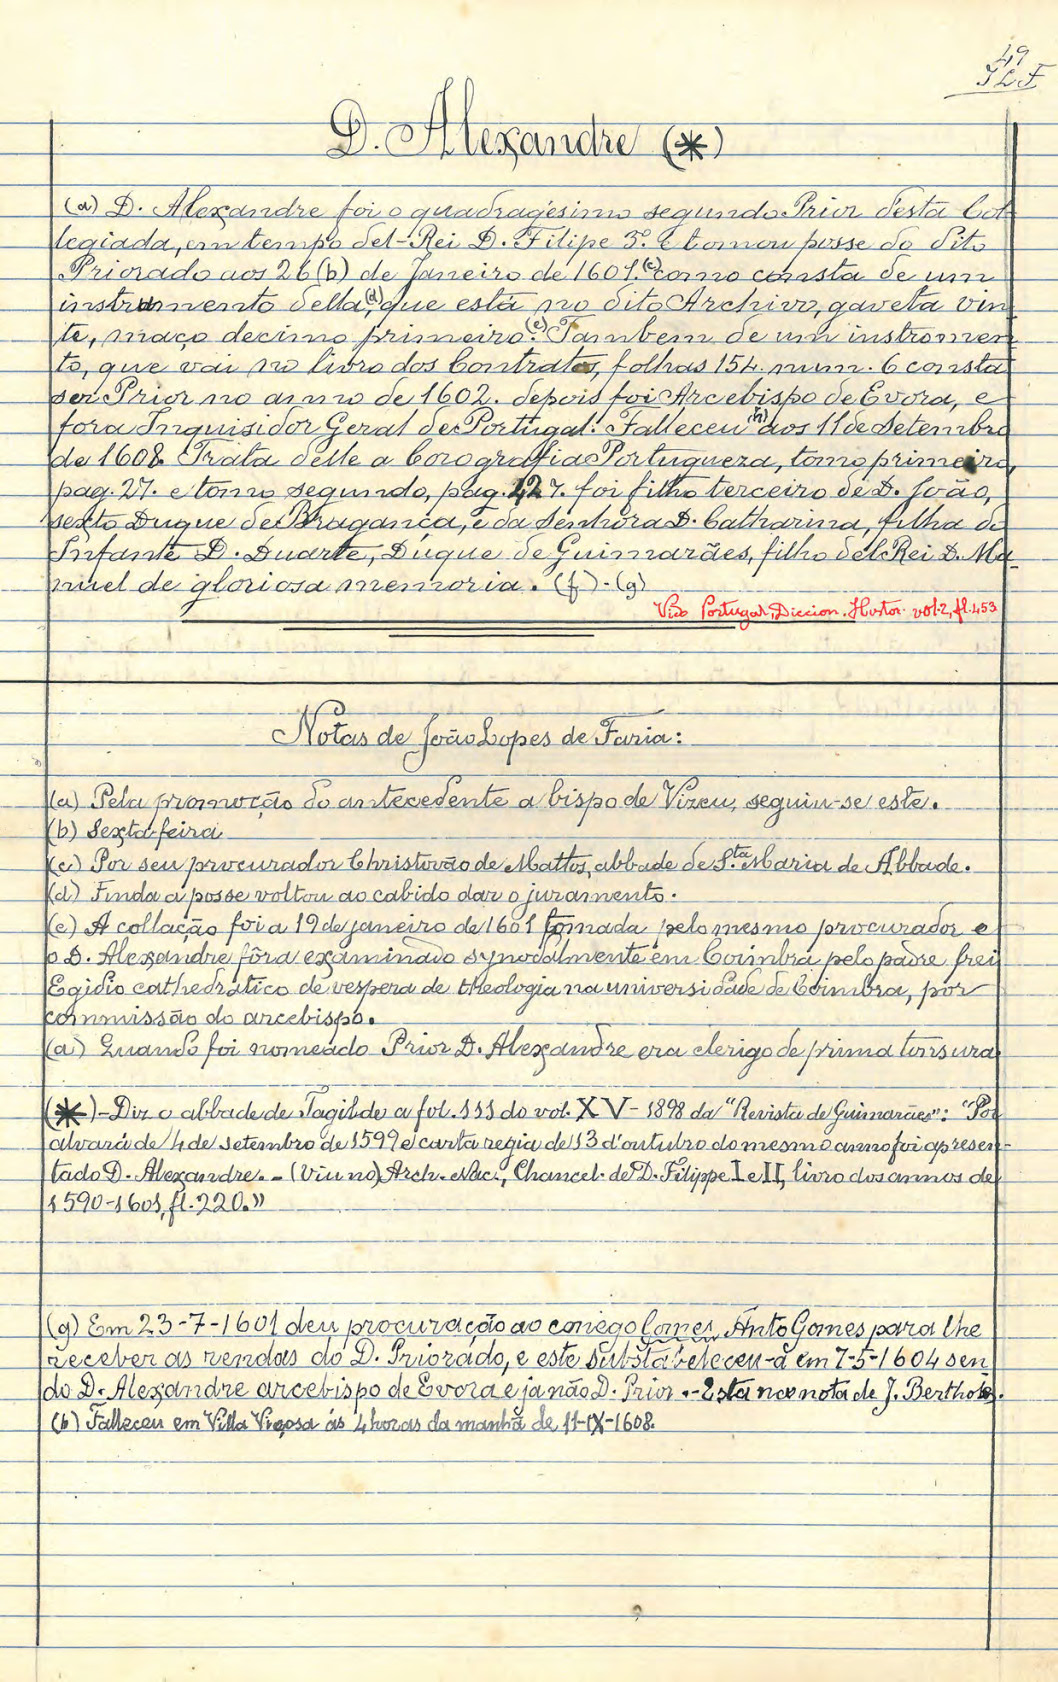 49
JLF
D. Alexandre (*)
(a) D. Alexandre foi o quadragésimo segundo Prior desta Col-
legiada, em tempo del-Rei D. Filipe 3º. e tomou posse do dito
Priorado aos 26 (b) de Janeiro de 1601.(c) como consta de um
instrumento della,(d) que está no dito Archivo, gaveta vin-
te, maço decimo primeiro.(e) Tambem de um instromen-
to, que vai no livro dos Contratos, folhas 154. num. 6 consta
ser Prior no anno de 1602. depois foi Arcebispo de Evora, e
fora Inquisidor Geral de Portugal. Falleceu (h) aos 11 de Setembro
de 1608. Trata delle a Corografia Portugueza, tomo primeiro,
pag. 27. e tomo segundo, pag. 427. foi filho terceiro de D. João,
sexto Duque de Bragança, e da Senhora D. Catharina, filha do
Infante D. Duarte, Duque de Guimarães, filho del-Rei D. Ma-
nuel de gloriosa memoria. (f) - (g)
Vide Portugal, Diccion. Histor. vol. 2, fl. 453
Notas de João Lopes de Faria:
(a) Pela promoção do antecedente a bispo de Vizeu, seguiu-se este.
(b) Sexta-feira
(c) Por seu procurador Christovão de Mattos, abbade de S.ta Maria de Abbade.
(d) Finda a posse voltou ao cabido dar o juramento.
(e) A collação foi a 19 de janeiro de 1601 tomada pelo mesmo procurador e
o D. Alexandre fôra examinado synodalmente em Coimbra pelo padre frei
Egidio cathedratico de vespera de theologia na universidade de Coimbra, por
commissão do arcebispo.
(a) Quando foi nomeado Prior D. Alexandre era clerigo de prima tonsura
(*) - Diz o abbade de Tagilde a fol. 111 do vol. XV - 1898 da "Revista de Guimarães": "Por
alvará de 4 de setembro de 1599 e carta regia de 13 d'outubro do mesmo anno foi apresen-
tado D. Alexandre. - (Viu no) Arch. Nac., Chancel. de D. Filippe I e II, livro dos annos de
1590-1601, fl. 220.»
(g) Em 23-7-1601 deu procuração ao conego Gomes, Anto Gomes para lhe
receber as rendas do D. Priorado, e este substabeleceu-a em 7-5-1604 sen
do D. Alexandre arcebispo de Evora e ja não D. Prior. - Esta na nota de J. Berthol.
(h) Falleceu em Villa Viçosa ás 4 horas da manhã de 11-IX-1608.